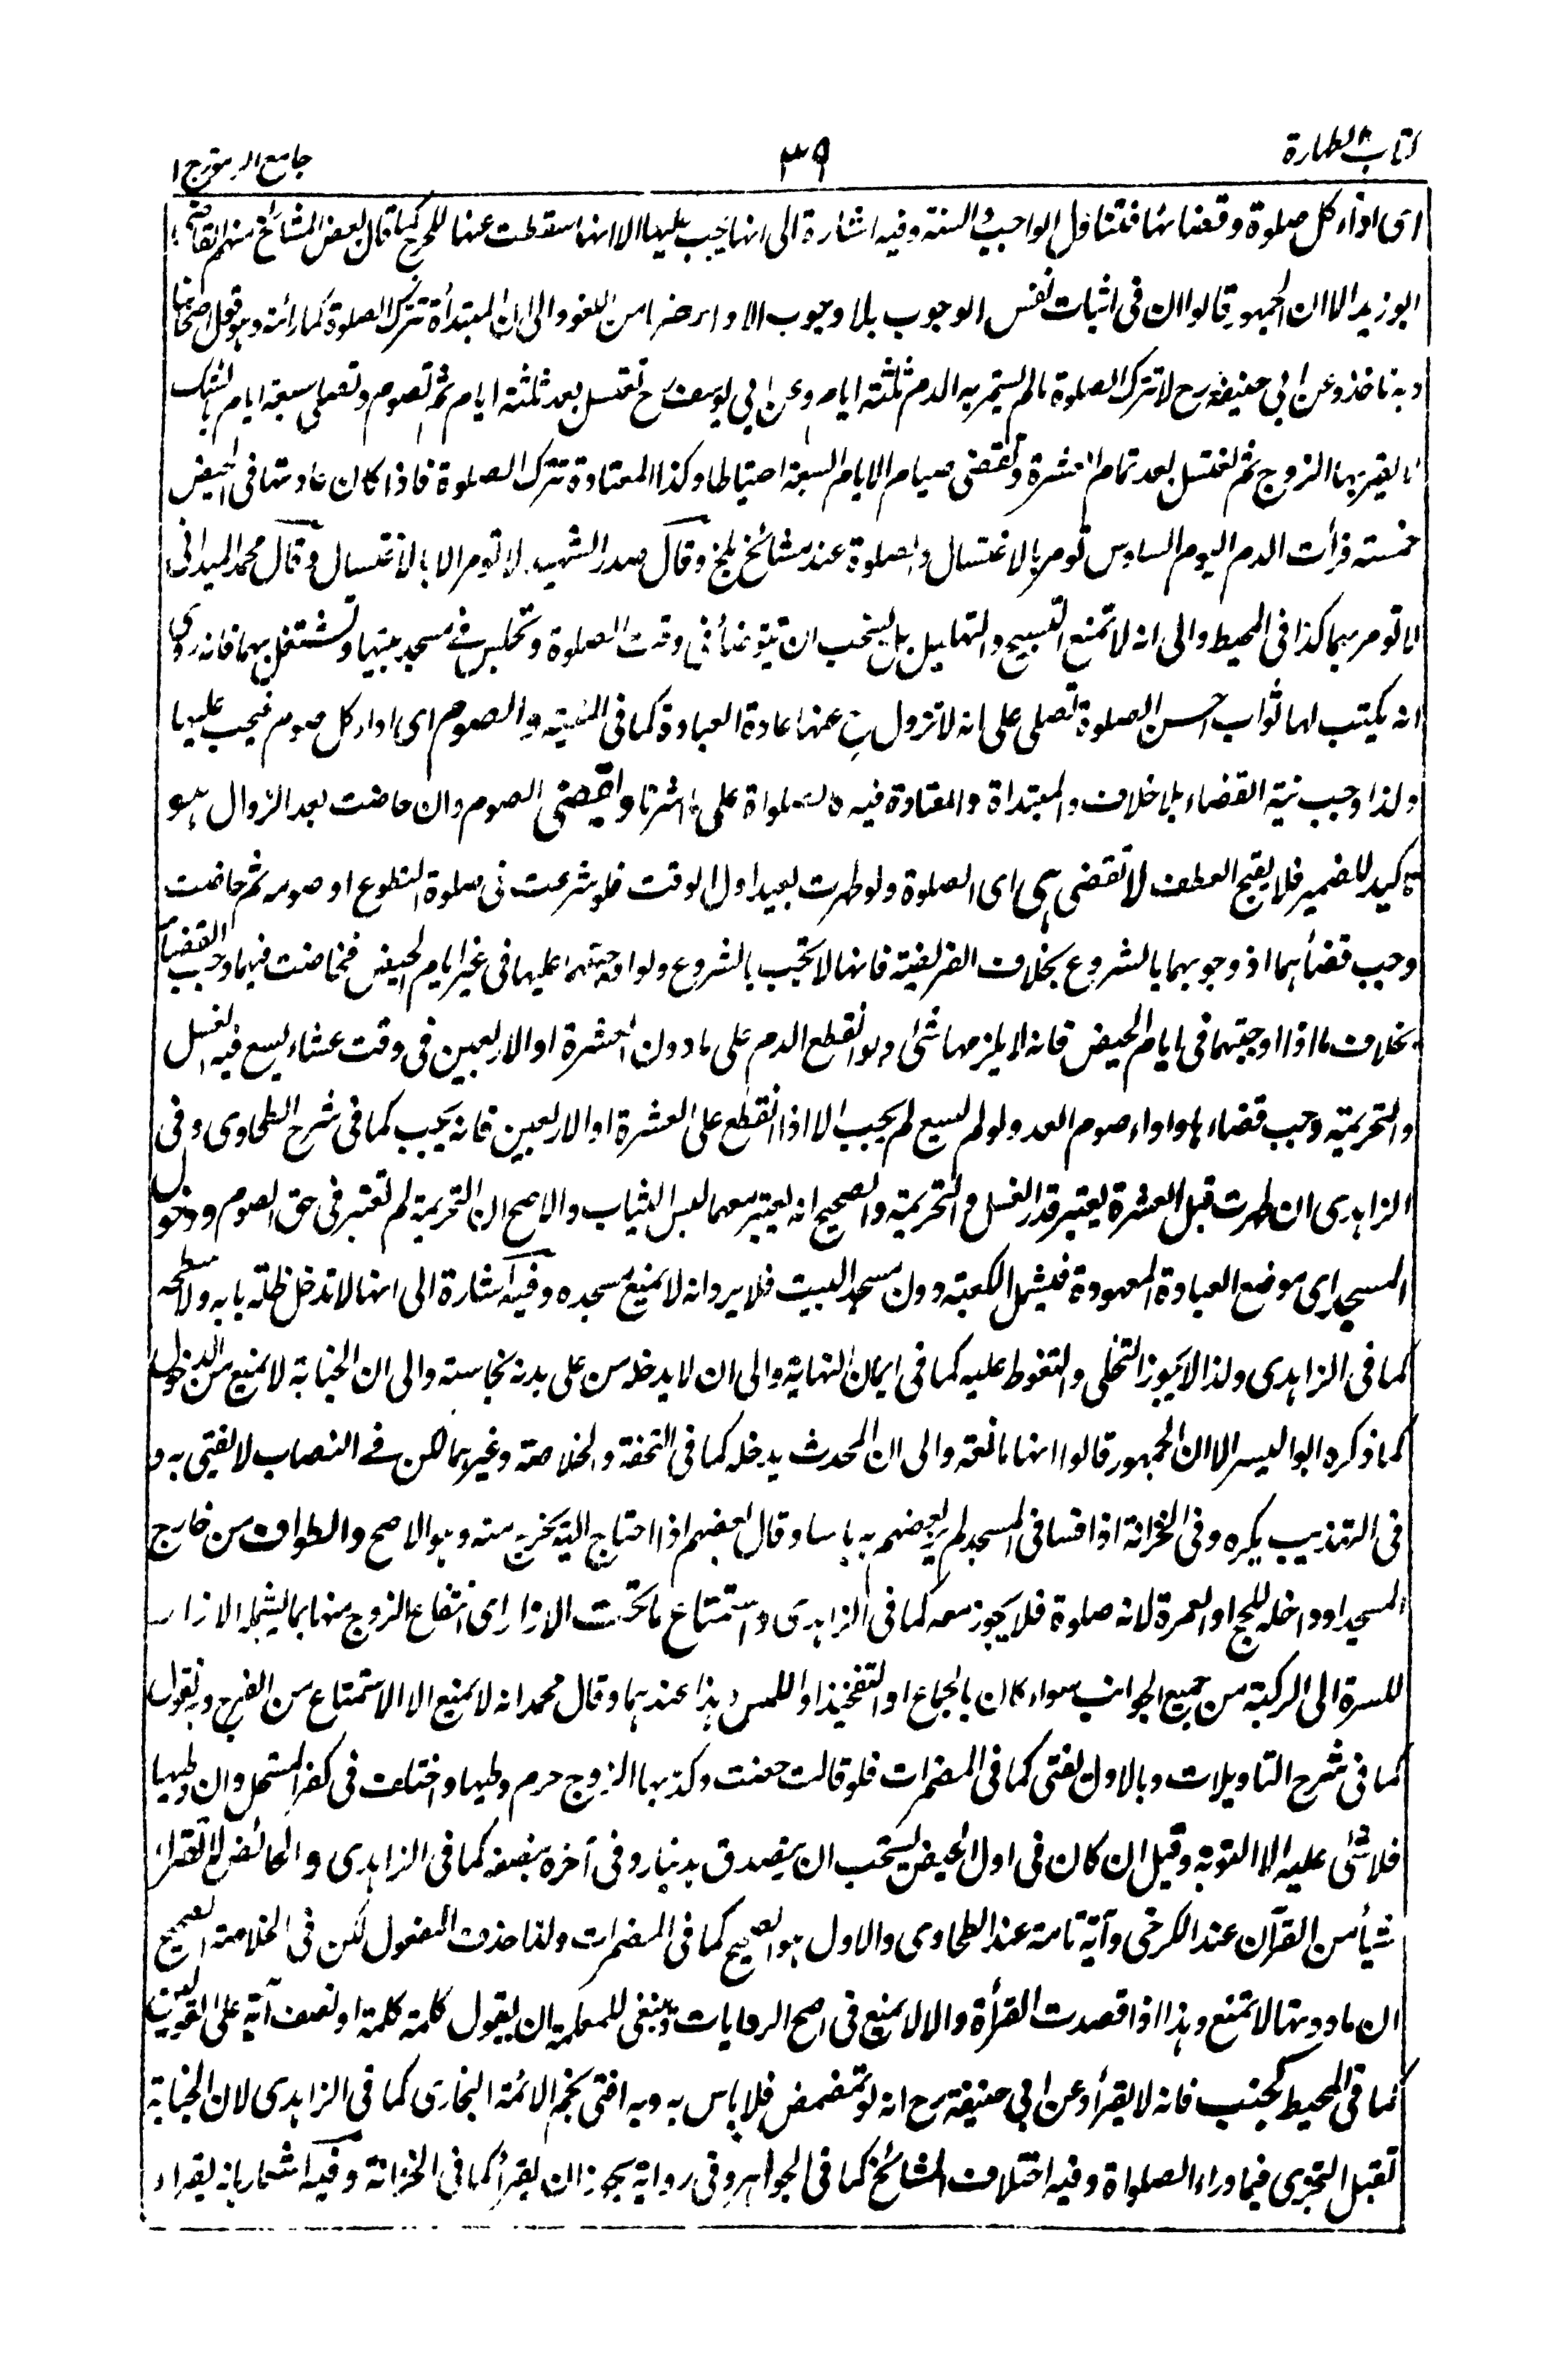 كتاب الطهارة
٣٩
جامع الرموز ج ١
اى اداء كل صلوة وقضائها فتتناول الواجب والسنة وفيه اشارة الى انها تجب عليها الا انها سقطت عنها للحرج كما قال بعض المشائخ منهم القاضى
ابو زيد الا ان الجمهور قالوا ان فى اثبات نفس الوجوب بلا وجوب الاداء ضربا من اللغو والى ان المبتدأة تترك الصلوة كما رأته وهو قول اصحابنا
وبه ناخذ وعن ابى حنيفة رح لا تترك الصلوة ما لم يستمر به الدم ثلثة ايام وعن ابى يوسف رح تغتسل بعد ثلثة ايام ثم تصوم وتصلى سبعة ايام بالشك
لا يقربها الزوج ثم تغتسل بعد تمام العشرة وتقضى صيام الايام السبعة احتياطا وكذا المعتادة تترك الصلوة فاذا كان عادتها فى الحيض
خمسة فرأت الدم اليوم السادس تومر بالاغتسال والصلوة عند مشائخ بلخ وقال صدر الشهيد لا تومر الا بالاغتسال وقال محمد الميدانى
لا تومر بهما كذا فى المحيط والى انه لا تمنع التسبيح والتهليل بل يستحب ان تتوضأ فى وقت الصلوة وتجلس فى مسجد بيتها وتشتغل بهما فانه روى
انه يكتب لها ثواب احسن الصلوة تصلى على انه لا تزول عنها عادة العبادة كما فى المنية والصوم اى اداء كل صوم فيجب عليها
ولذا وجب نية القضاء بلا خلاف والمبتداة والمعتادة فيه كالصلواة على ما اشرنا وتقضى الصوم وان حاضت بعد الزوال هو
تاكيد للضمير فلا يقبح العطف لا تقضى هى اى الصلوة ولو طهرت بعيد اول الوقت فلو شرعت فى صلوة التطوع او صومه ثم حاضت
وجب قضاؤهما اذ وجوبهما بالشروع بخلاف الفريضة فانها لا تجب بالشروع ولو اوجبتهما عليها فى غير ايام الحيض فحاضت فيهما وجب القضاء
بخلاف ما اذا اوجبتهما فى ايام الحيض فانه لا يلزمها شئ ولو انقطع الدم على ما دون العشرة او الاربعين فى وقت عشاء يسع فيه الغسل
والتحريمة وجب قضاءها واداء صوم الغد ولو لم يسع لم يجب الا اذا انقطع على العشرة او الاربعين فانه يجب كما فى شرح الطحاوى وفى
الزاهدى ان طهرت قبل العشرة يعتبر قدر الغسل والتحريمة والصحيح انه يعتبر معهما لبس الثياب والاصح ان التحريمة لم تعتبر فى حق الصوم ودخول
المسجد اى موضع العبادة المعهودة فيشمل الكعبة دون مسجد البيت فلا يرد انه لا يمنع مسجده وفيه اشارة الى انها لا تدخل ظلة بابه ولا سطحه
كما فى الزاهدى ولذا لا يجوز التخلى والتغوط عليه كما فى ايمان النهاية والى ان لا يدخله من على بدنه نجاسة والى ان الجنابة لا يمنع من الدخول
كما ذكره ابو اليسر الا ان الجمهور قالوا انها مانعة والى ان المحدث يدخله كما فى التحفة والخلاصة وغيرهما لكن فى النصاب لا يفتى به و
فى التهذيب يكره وفى الخزانة اذا فسا فى المسجد لم ير بعضهم به باسا وقال بعضهم اذا احتاج اليه يخرج منه وهو الاصح والطواف من خارج
المسجد او داخله للحج او العمرة لانه صلوة فلا يجوز معه كما فى الزاهدى واستمتاع ما تحت الازار اى انتفاع الزوج منها بما يشمله الازار
للسرة الى الركبة من جميع الجوانب سواء كان بالجماع او التفخيذ او اللمس وهذا عندهما وقال محمد انه لا يمنع الا الاستمتاع من الفرج وبه نقول
كما فى شرح التاويلات وبالاول يفتى كما فى المضمرات فلو قالت حضت وكذبها الزوج حرم وطيها واختلف فى كفر المستحل وان وطيها
فلا شئ عليه الا التوبة وقيل ان كان فى اول الحيض يستحب ان يتصدق بدينار وفى آخره بنصفه كما فى الزاهدى والحائض لا تقرأ
شيأ من القرآن عند الكرخى وآية تامة عند الطحاوى والاول هو الصحيح كما فى المضمرات ولذا حذف المفعول لكن فى الخلاصة الصحيح
ان ما دونها لا تمنع وهذا اذا قصدت القرأة والا لا يمنع فى اصح الروايات وينبغى للمعلمة ان يقول كلمة كلمة او نصف آية على القولين
كما فى المحيط كجنب فانه لا يقرأ وعن ابى حنيفة رح انه لو تمضمض فلا باس به وبه افتى نجم الائمة البخارى كما فى الزاهدى لان الجنابة
تقبل التجزى فيما وراء الصلواة وفيه اختلاف المشائخ كما فى الجواهر وفى رواية يجوز ان يقرأ كما فى الخزانة وفيه اشعار بانه يقراء